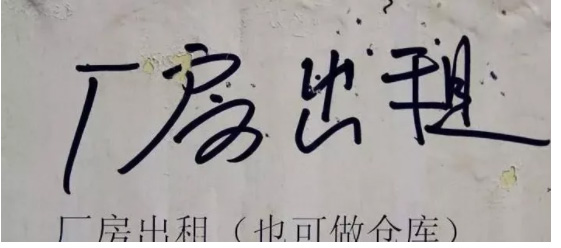 厂房出租
厂房出租（也可做仓库）